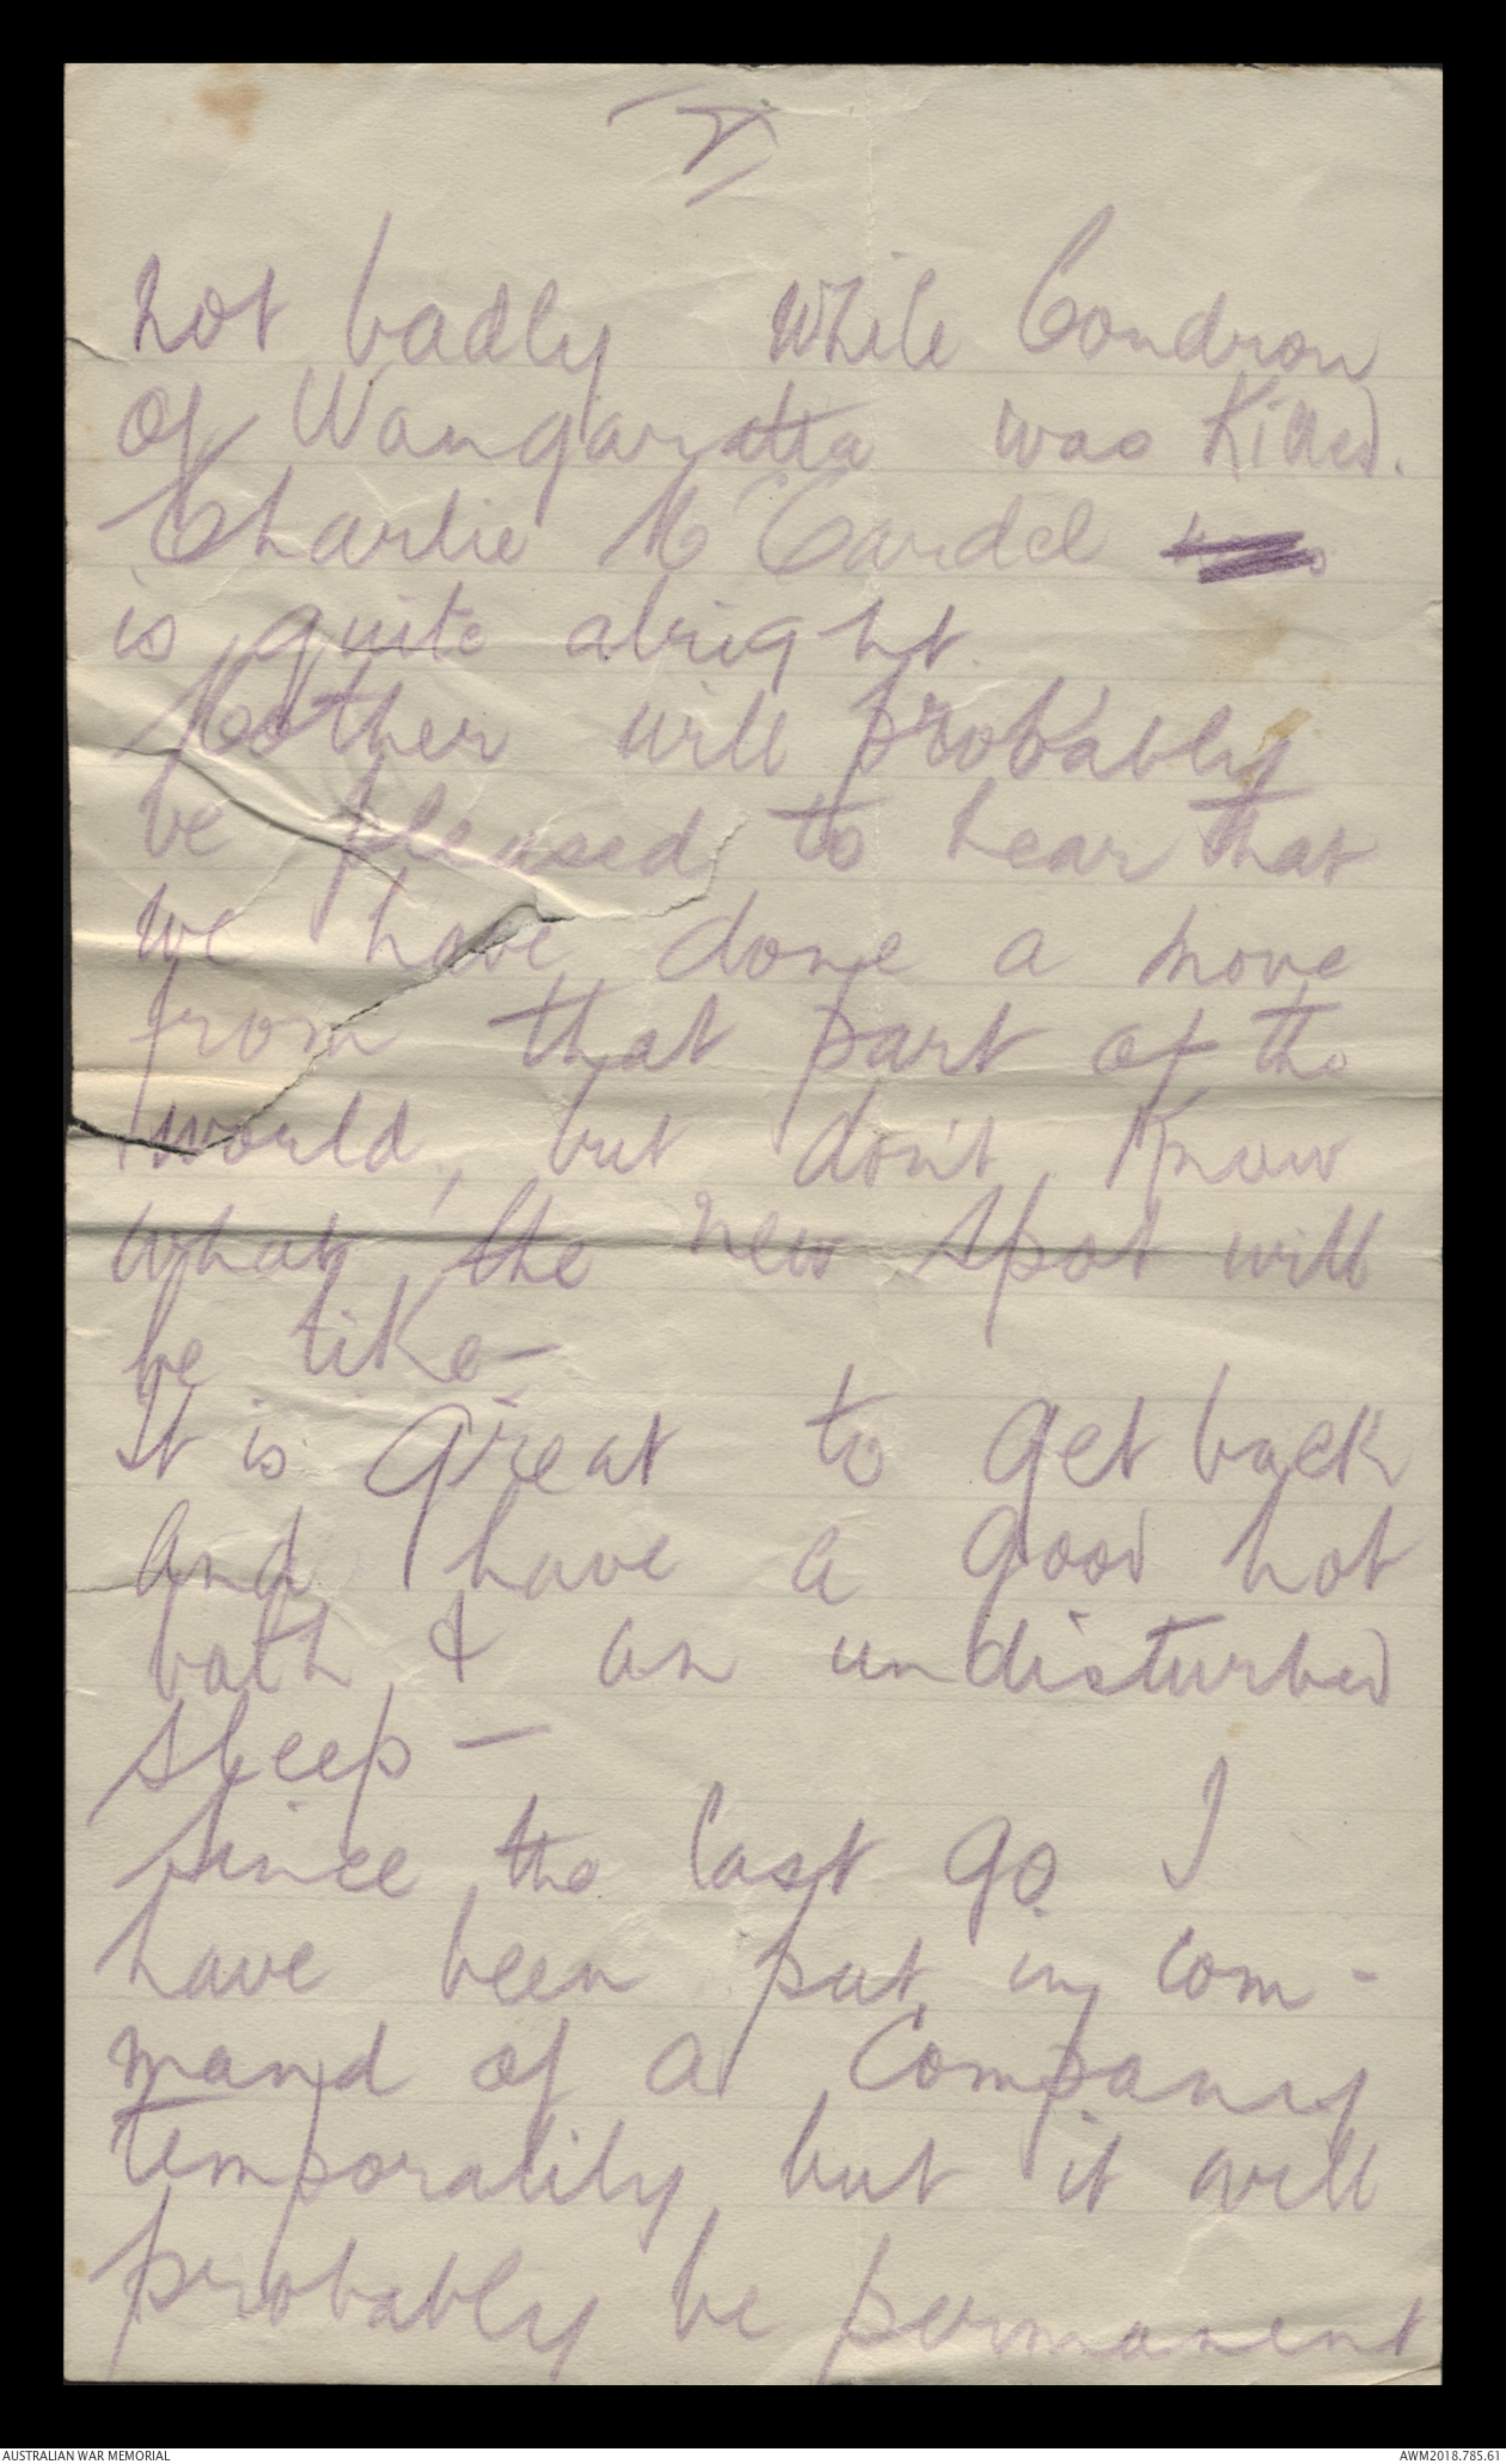 not badly while Condron
of Wangaratta was Killed.
Charlie McCardel
is quite alright.
Mother will probably
be pleased to hear that
we have done a move
from that part of the
world, but don't Know
what the new spot will
be like -
It is great to get back
and have a good hot
bath & an undisturbed
sleep -
Since the last go I
have been put in com-
mand of a Company
temporalily but it will
probably be permanent
AUSTRALIAN WAR MEMORIAL
AWM2018.785.61